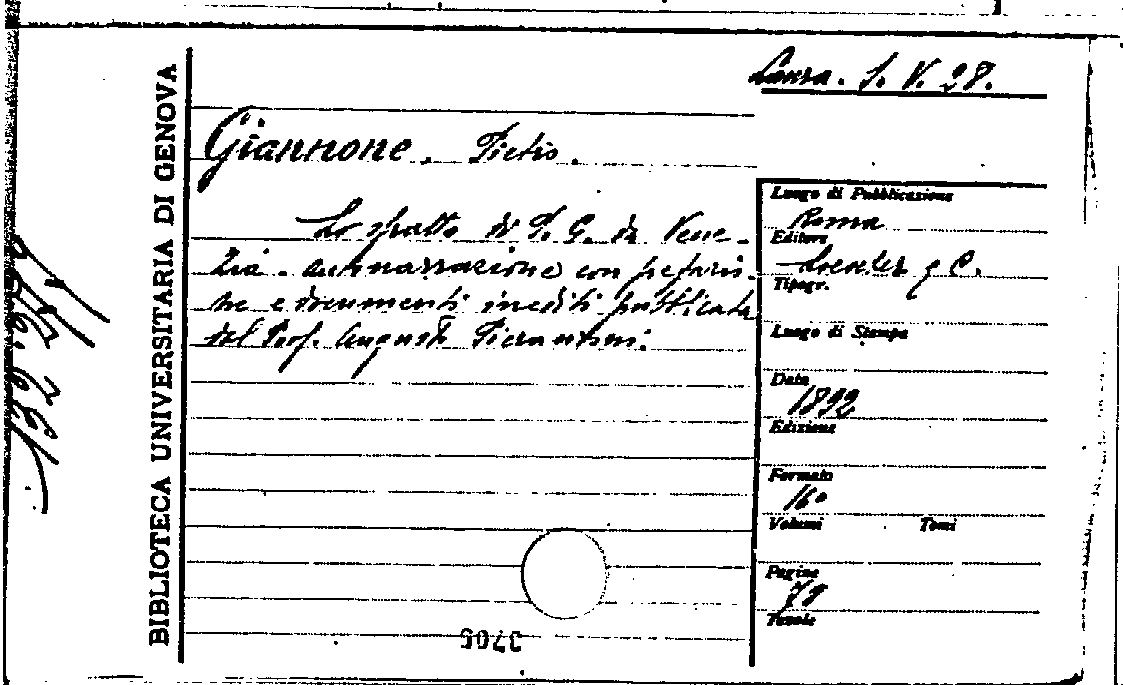 BIBLIOTECA UNIVERSITARIA DI GENOVA
Lanza. S. V. 28.
Giannone. Pietro.
Lo sfratto di P. G. da Vene-
zia. autonarrazione con prefazio-
ne e documenti inediti pubblicata
dal Prof. Augusto Pierantoni.
Luogo di Pubblicazione
Roma
Editore
Loescher e C.
Tipogr.
Luogo di Stampa
Data
1892
Edizione
Formato
16°
Volumi Tomi
Pagine
78
Tavole